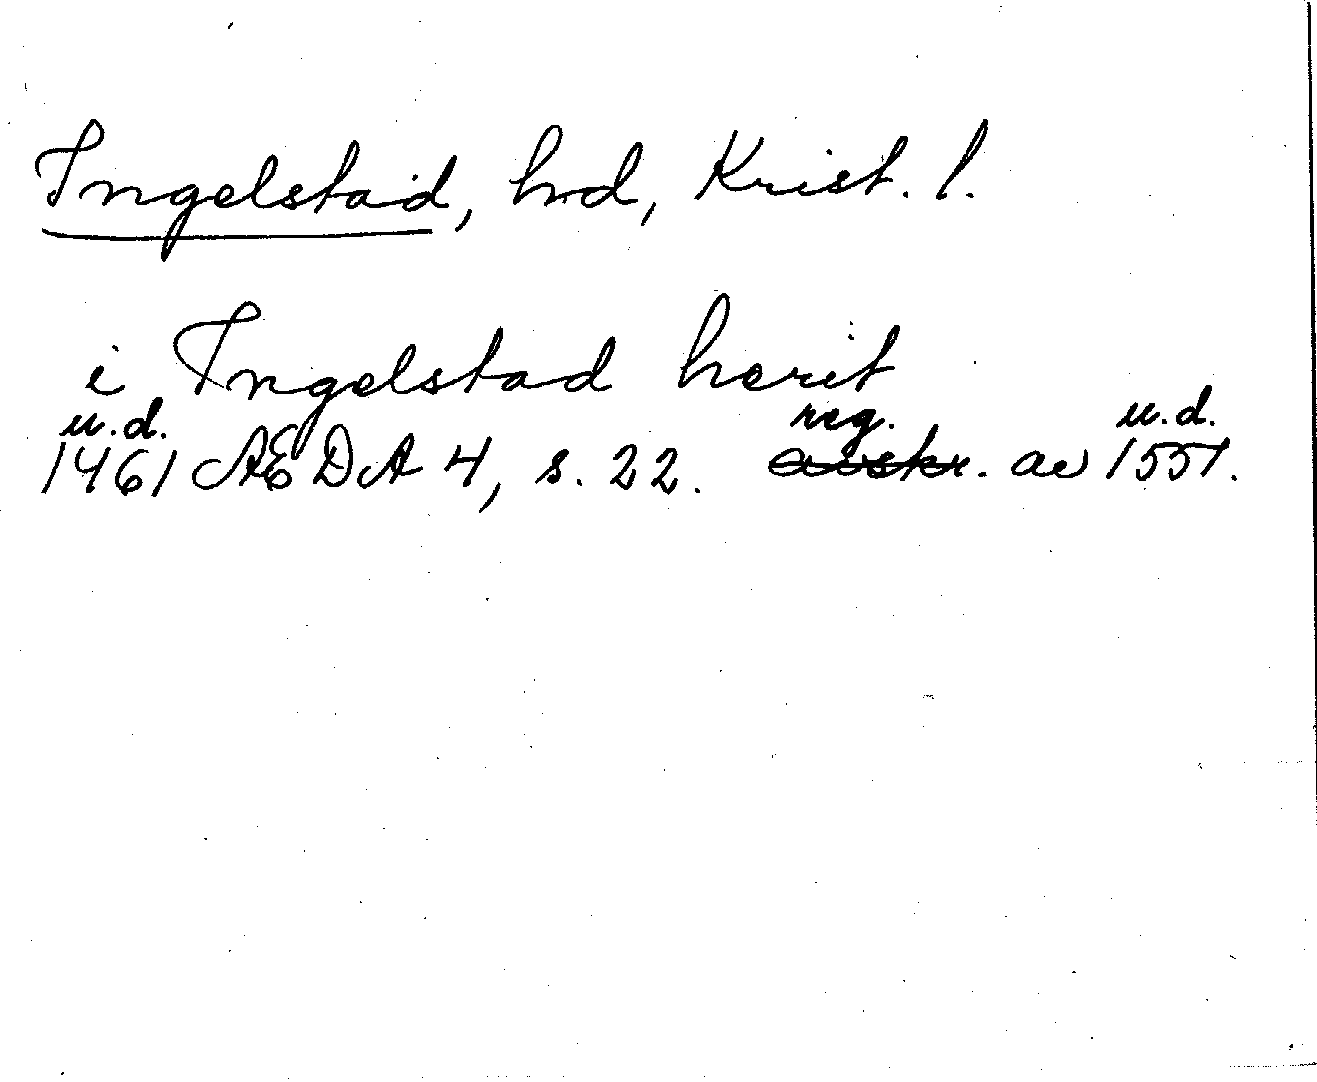 Ingelstad, hrd, Krist. l.
i Ingelstad herit
u.d. reg. u.d.
1461 ÆDA 4, s. 22. avskr. av 1551.